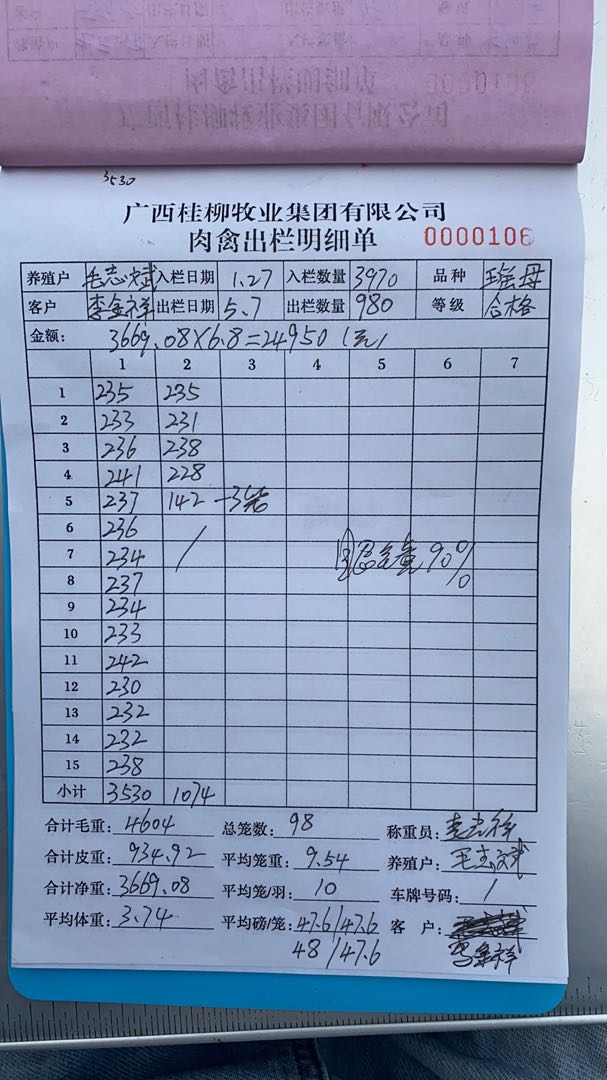 3530
广西桂柳牧业集团有限公司
肉禽出栏明细单 0000106
养殖户 毛志斌 入栏日期 1.27 入栏数量 3970 品种 瑶母
客户 李金祥 出栏日期 5.7 出栏数量 980 等级 合格
金额: 3669.08×6.8=24950(元)
1 2 3 4 5 6 7
1 235 235
2 233 231
3 236 238
4 241 228
5 237 142 -3笼
6 236 /
7 234 90%
8 237
9 234
10 233
11 242
12 230
13 232
14 232
15 238
小计 3530 1074
合计毛重: 4604 总笼数: 98 称重员:
合计皮重: 934.92 平均笼重: 9.54 养殖户: 毛志斌
合计净重: 3669.08 平均笼/羽: 10 车牌号码: /
平均体重: 3.74 平均磅/笼: 47.6/47.6 客户:
48/47.6